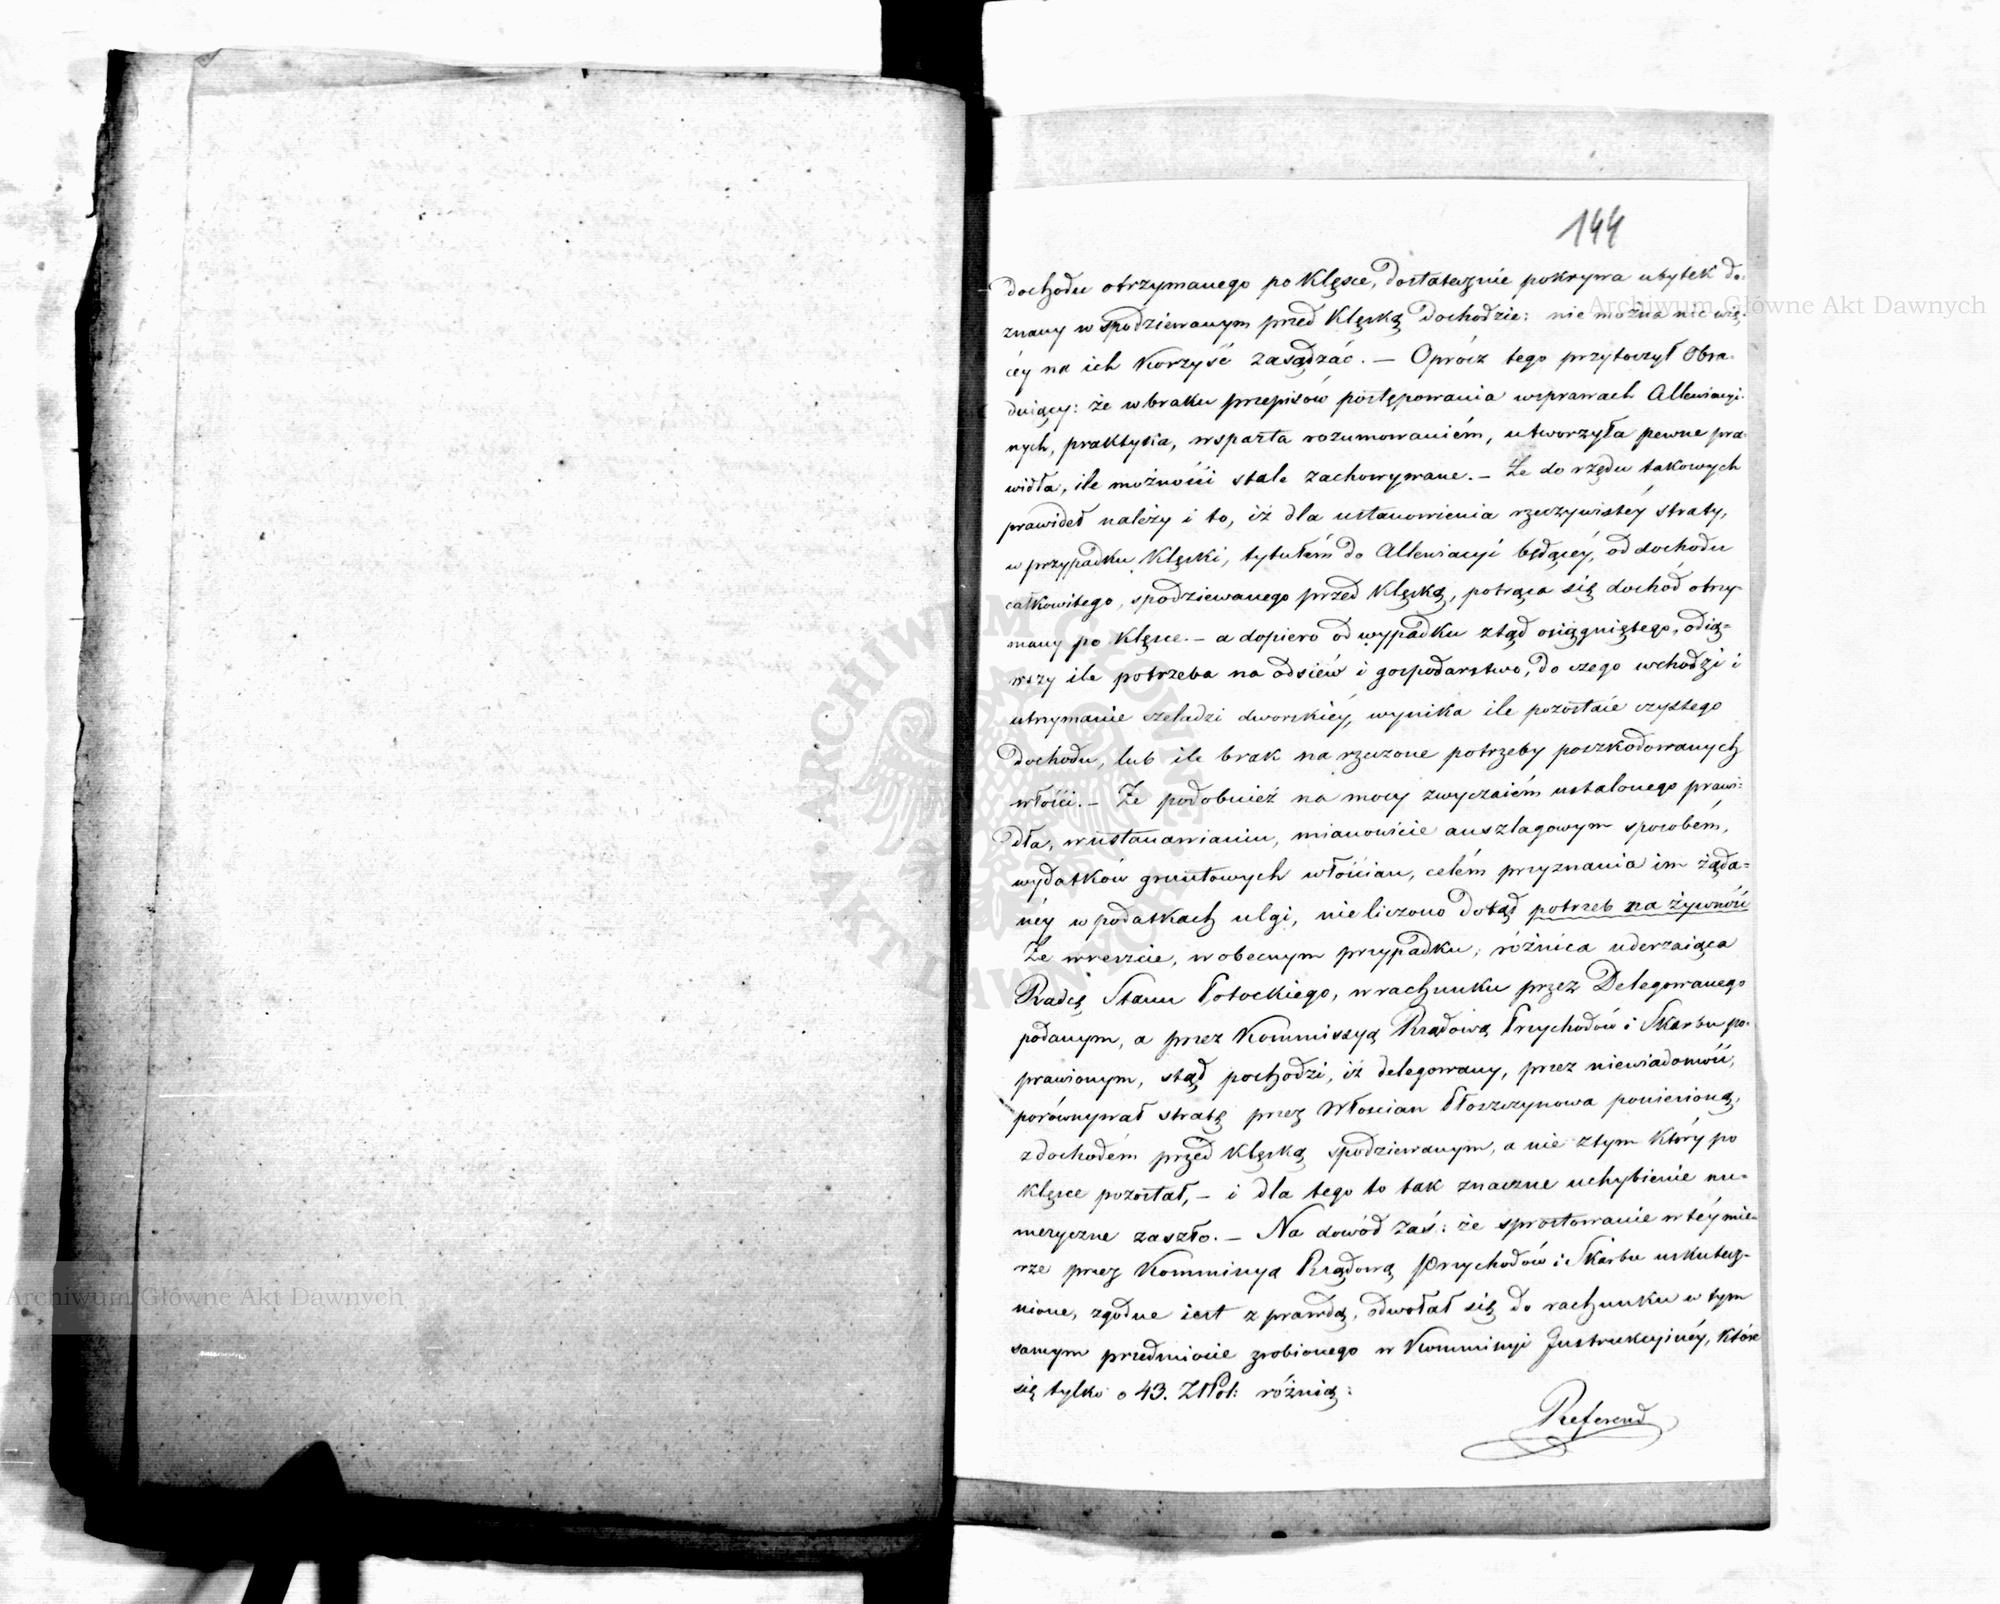 144
dochodu otrzymanego po klęsce, dostatecznie pokrywa ubytek do-
znany w spodziewanym przed klęską dochodzie: nie można nic wię-
céy na ich korzyść zasądzać. — Oprócz tego przytoczył Obra-
duiący: że w braku przepisów postępowania w sprawach Allewiacyi-
nych, praktyka, wsparta rozumowaniém, utworzyła pewne pra-
widła, ile możności stale zachowywane. — Że do rzędu takowych
prawideł należy i to, iż dla ustanowienia rzeczywistéy straty,
w przypadku klęski, tytułem do Allewiacyi będącéy, od dochodu
całkowitego, spodziewanego przed klęską, potrąca się dochód otrzy-
many po klęsce. — a dopiero od wypadku ztąd osiągniętego, odią-
wszy ile potrzeba na odsiéw i gospodarstwo, do czego wchodzi i
utrzymanie czeladzi dworskiéy, wynika ile pozostaie czystego
dochodu, lub ile brak na rzeczone potrzeby poszkodowanych
włości. — Że podobnież na mocy zwyczaiém ustalonego prawi-
dła, w ustanawianiu, mianowicie anszlagowym sposobem,
wydatków gruntowych włościan, celém przyznania im żąda-
néy w podatkach ulgi, nie liczono dotąd potrzeb na żywność
Że wreszcie, w obecnym przypadku, różnica uderzaiąca
Radcę Stanu Potockiego, w rachunku przez Delegowanego
podanym, a przez Kommissyą Rządową Przychodów i Skarbu po-
prawionym, stąd pochodzi, iż delegowany, przez niewiadomość,
porównywał stratę przez Włościan Płoszczynowa poniesioną,
z dochodém przed klęską spodziewanym, a nie z tym który po
klęsce pozostał, — i dla tego to tak znaczne uchybienie nu-
meryczne zaszło. — Na dowód zaś: że sprostowanie w téy mie-
rze przez Kommissyą Rządową Przychodów i Skarbu uskutecz-
nione, zgodne iest z prawdą, odwołał się do rachunku w tym
samym przedmiocie zrobionego w Kommissyi Instrukcyinéy, które
się tylko o 43. ZłPol: różnią:
Referend
Archiwum Główne Akt Dawnych
Archiwum Główne Akt Dawnych
ARCHIWUM GŁÓWNE AKT DAWNYCH